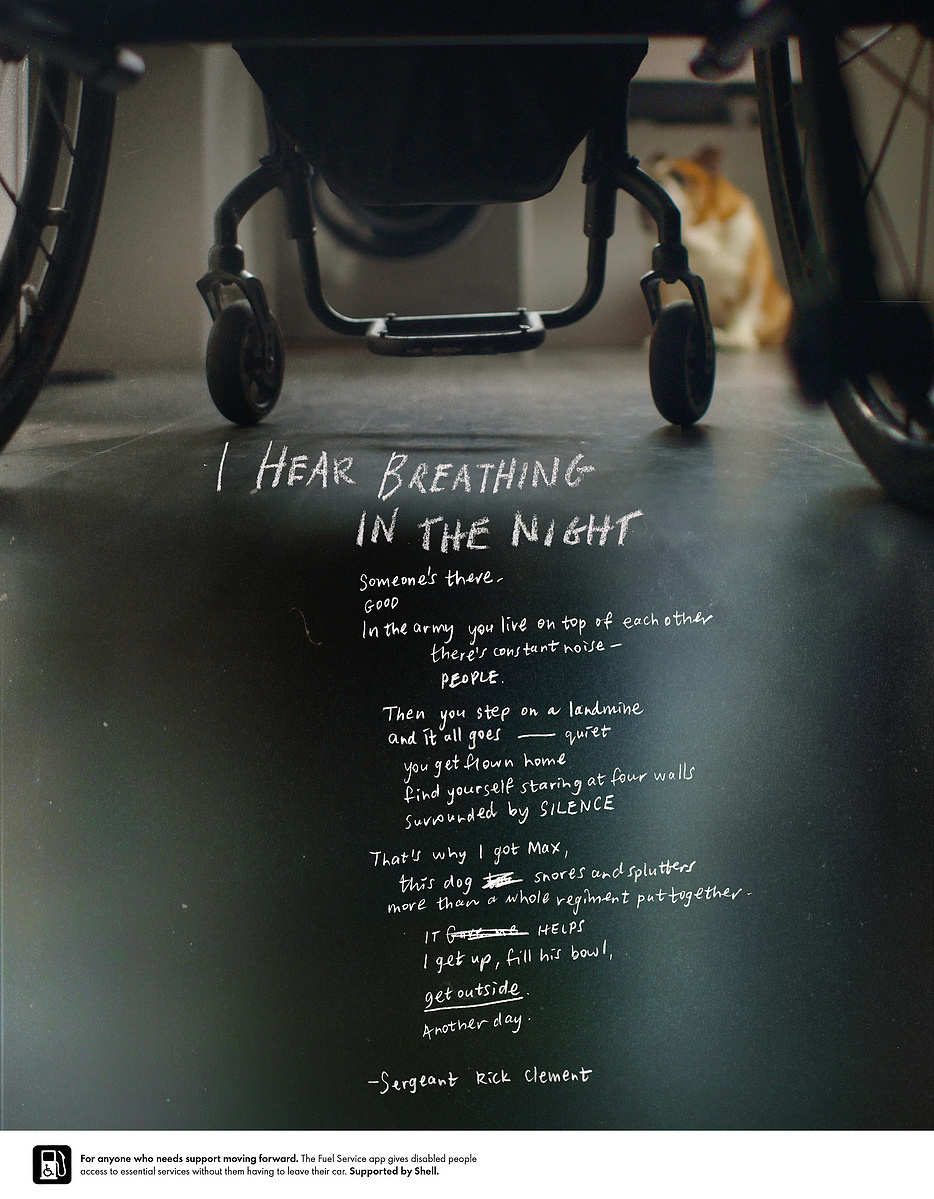 I HEAR BREATHING
IN THE NIGHT
Someone's there.
GOOD
In the army you live on top of each other
there's constant noise –
PEOPLE.
Then you step on a landmine
and it all goes — quiet
you get flown home
find yourself staring at four walls
surrounded by SILENCE
That's why I got Max,
this dog snores and splutters
more than a whole regiment put together.
IT HELPS
I get up, fill his bowl,
get outside.
Another day.
–Sergeant Rick Clement
For anyone who needs support moving forward. The Fuel Service app gives disabled people
access to essential services without them having to leave their car. Supported by Shell.